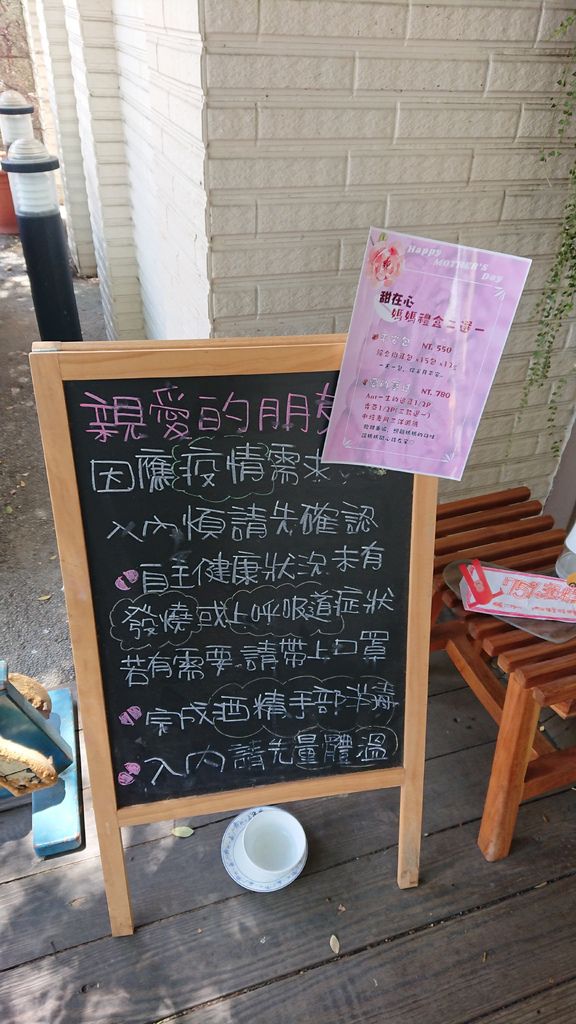 親愛的朋
因應疫情需求
入內煩請先確認
自主健康狀況未有
發燒或上呼吸道症狀
若有需要請帶上口罩
完成酒精手部消毒
入內請先量體溫
Happy
MOTHER'S
Day
甜在心
媽媽禮盒二選一
NT. 550
NT. 780
75%